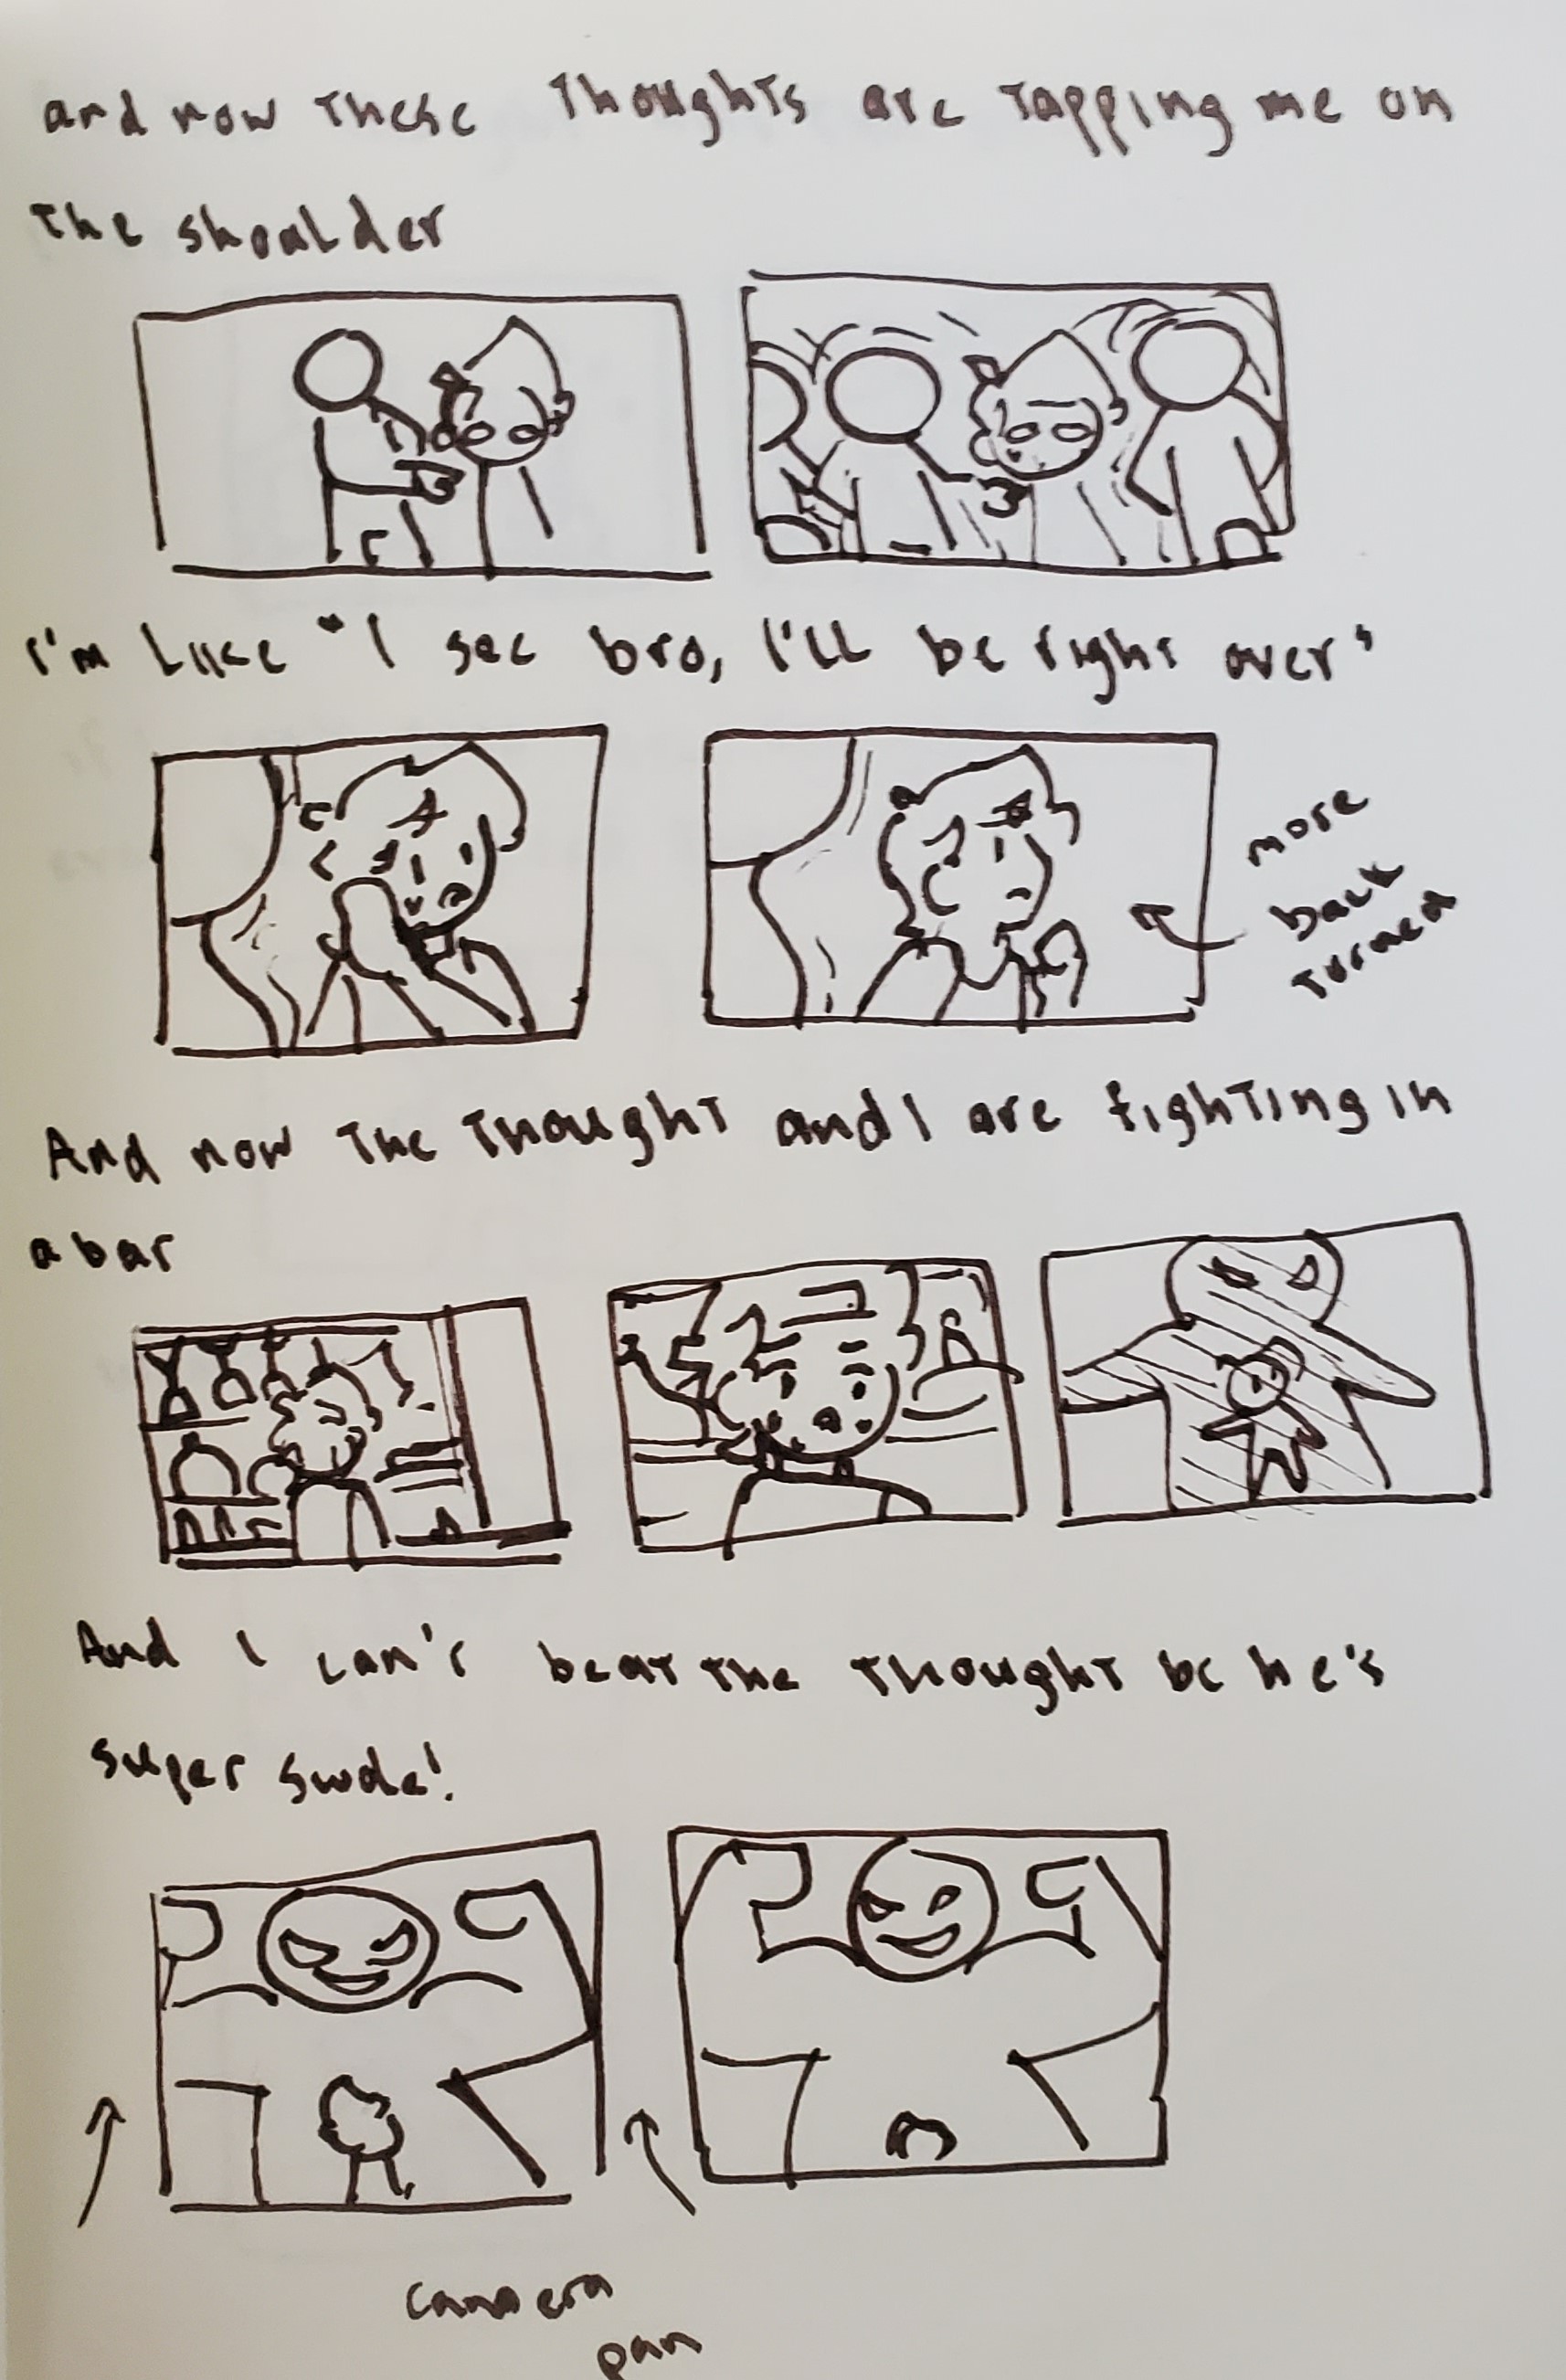 and now these thoughts are tapping me on
the shoulder
I'm like "I see bro, I'll be right over"
more
back
turned
And now the thought and I are fighting in
a bar
And I can't beat the thought bc he's
super swole!
camera
pan